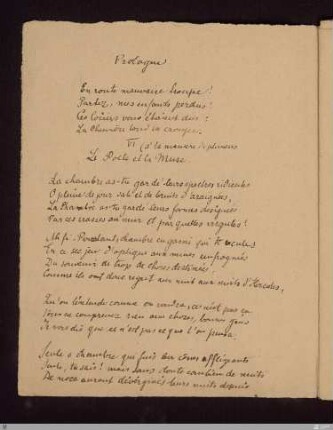 Prologue
En route mauvaise troupe !
Partez, mes enfants perdus !
Ces loisirs vous étaient dus :
La Chimère tend sa croupe.
VI (à la manière de plusieurs
Le Poète et la Muse
La chambre as-tu gardé leurs spectres ridicules
O pleine de jour sale et de bruits d'araignées,
La chambre as-tu gardé leurs formes désignées
Par ces crasses au mur et par quelles virgules !
Ah fi ! Pourtant, chambre en garni qui te recules
En ce sec jeu d'optique aux mines renfrognées
Du souvenir de trop de choses destinées,
Comme ils ont donc regret aux nuits aux nuits d'Hercules,
Qu'on l'entende comme on voudra, ce n'est pas ça
Vous ne comprenez rien aux choses, bonnes gens
Je vous dis que ce n'est pas ce que l'on pensa.
Seule ô chambre qui fuis en cônes affligeants
Seule, tu sais ! mais sans doute combien de nuits
De noce auront dévirginé leurs nuits depuis